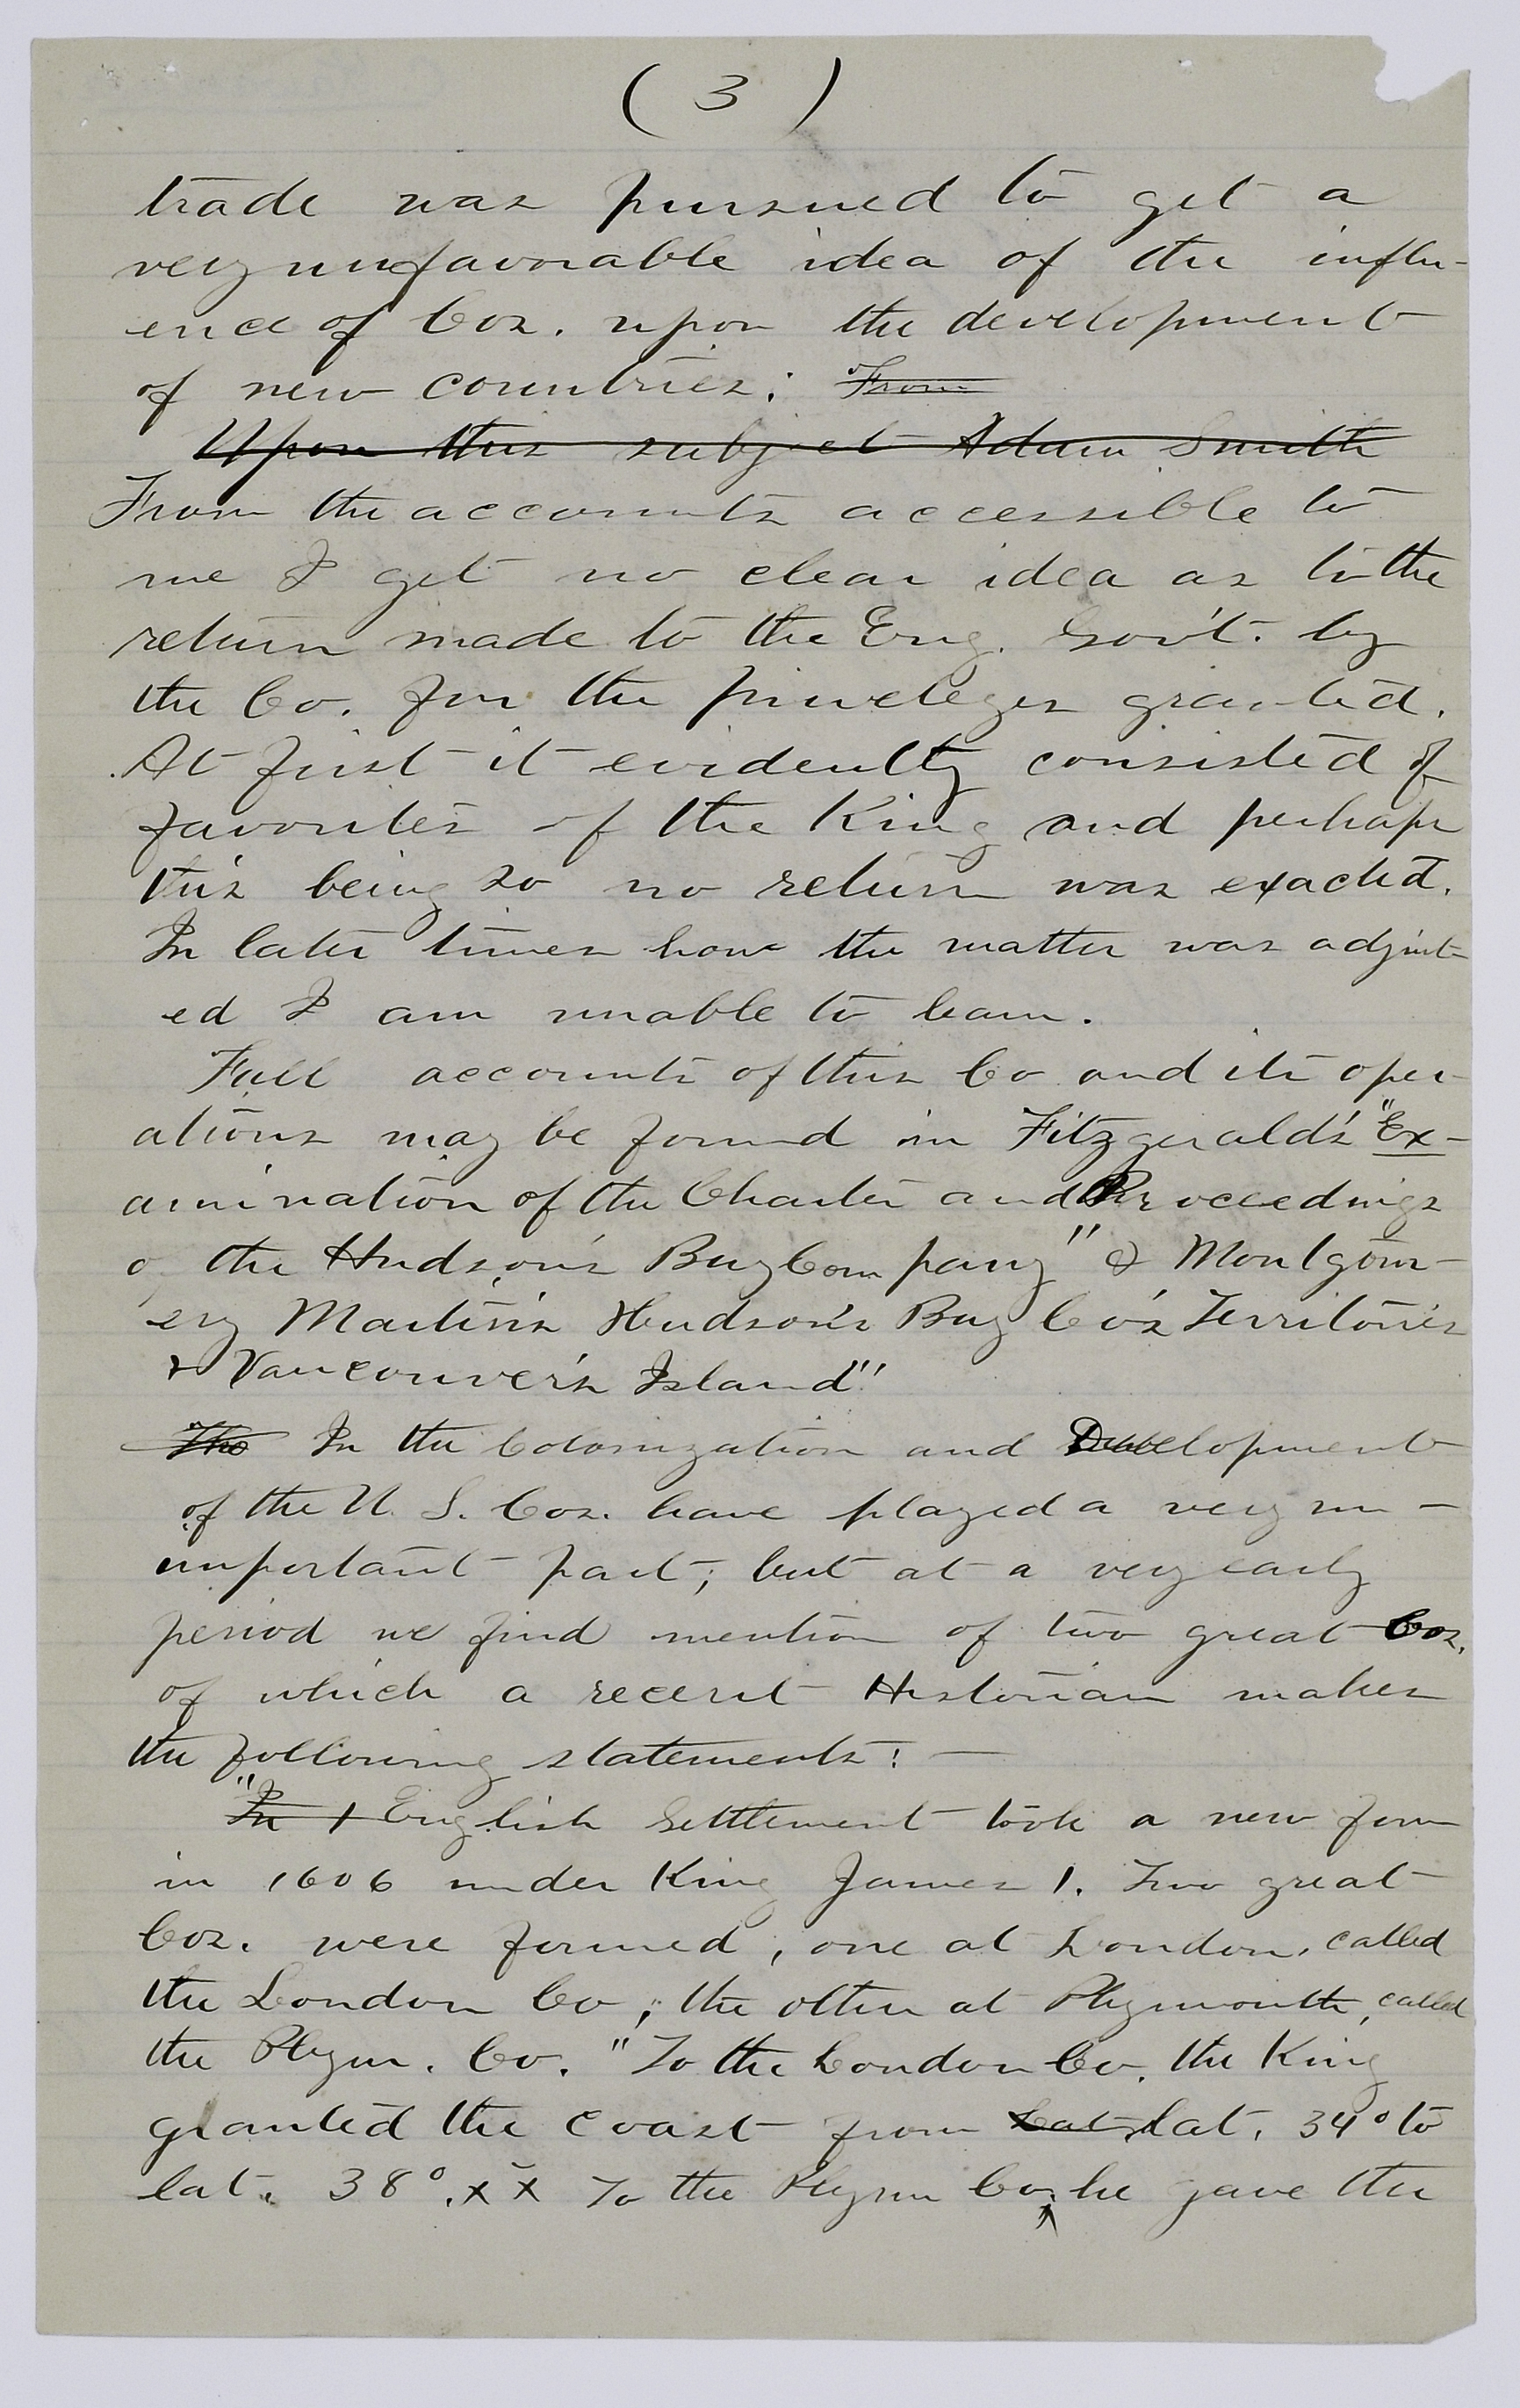 ( 3 )
trade was pursued to get a
very unfavorable idea of the influ-
ence of Cos. upon the development
of new countries: From
Upon this subject Adam Smith
From the accounts accessible to
me I get no clear idea as to the
return made to the Eng. Gov't. by
the Co. for the priveleges granted.
At first it evidently consisted of
favorites of the King and perhaps
this being so no return was exacted.
In later times how the matter was adjust-
ed I am unable to learn.
Full accounts of this Co and its oper-
ations may be found in Fitzgerald's "Ex-
amination of the Charter and Proceedings
of the Hudson's Bay Company" & Montgom-
ery Martin's Hudson's Bay Co's Territories
& Vancouver's Island"
The In the Colonization and Development
of the U. S. Cos. have played a very un-
important part; but at a very early
period we find mention of two great Cos.
of which a recent Historian makes
the following statements: —
"In English Settlement took a new form
in 1606 under King James 1. Two great
Cos. were formed, one at London, called
the London Co; the other at Plymouth, called
the Plym. Co. "To the London Co. the King
granted the coast from Lat. lat. 34° to
lat. 38°. x x To the Plym Co, he gave the